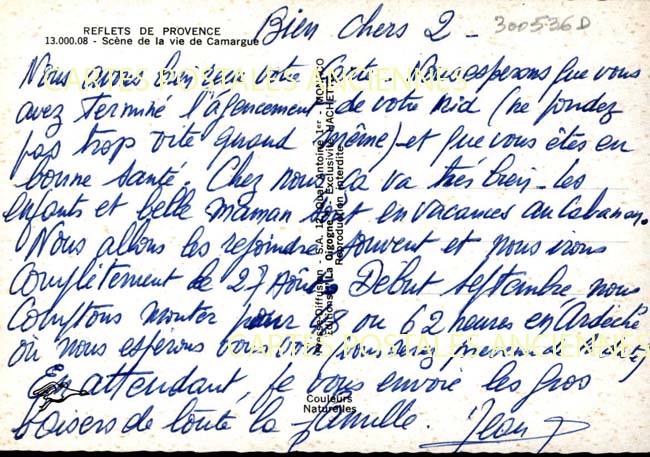 REFLETS DE PROVENCE
13.000.08 - Scène de la vie de Camargue
300536D
Bien chers 2 -
Nous avons bien reçu votre Carte. Nous espérons que vous
avez terminé l'agencement de votre nid (ne pondez
pas trop vite quand même) et que vous êtes en
bonne santé. Chez nous ça va très bien - les
enfants et belle maman sont en vacances au Cabanon.
Nous allons les rejoindre souvent et nous irons
Complètement le 27 Août. Début septembre nous
Comptons monter pour 48 ou 62 heures en Ardèche
où nous espérons vous
En attendant, je vous envoie les gros
baisers de toute la famille. Jean
Couleurs
Naturelles
Presse-Diffusion S.A. 12, Quai Antoine 1er - MONACO
Editions "La Cigogne" - Exclusivité HACHETTE
Reproduction interdite
CARTES POSTALES ANCIENNES
CARTES POSTALES ANCIENNES